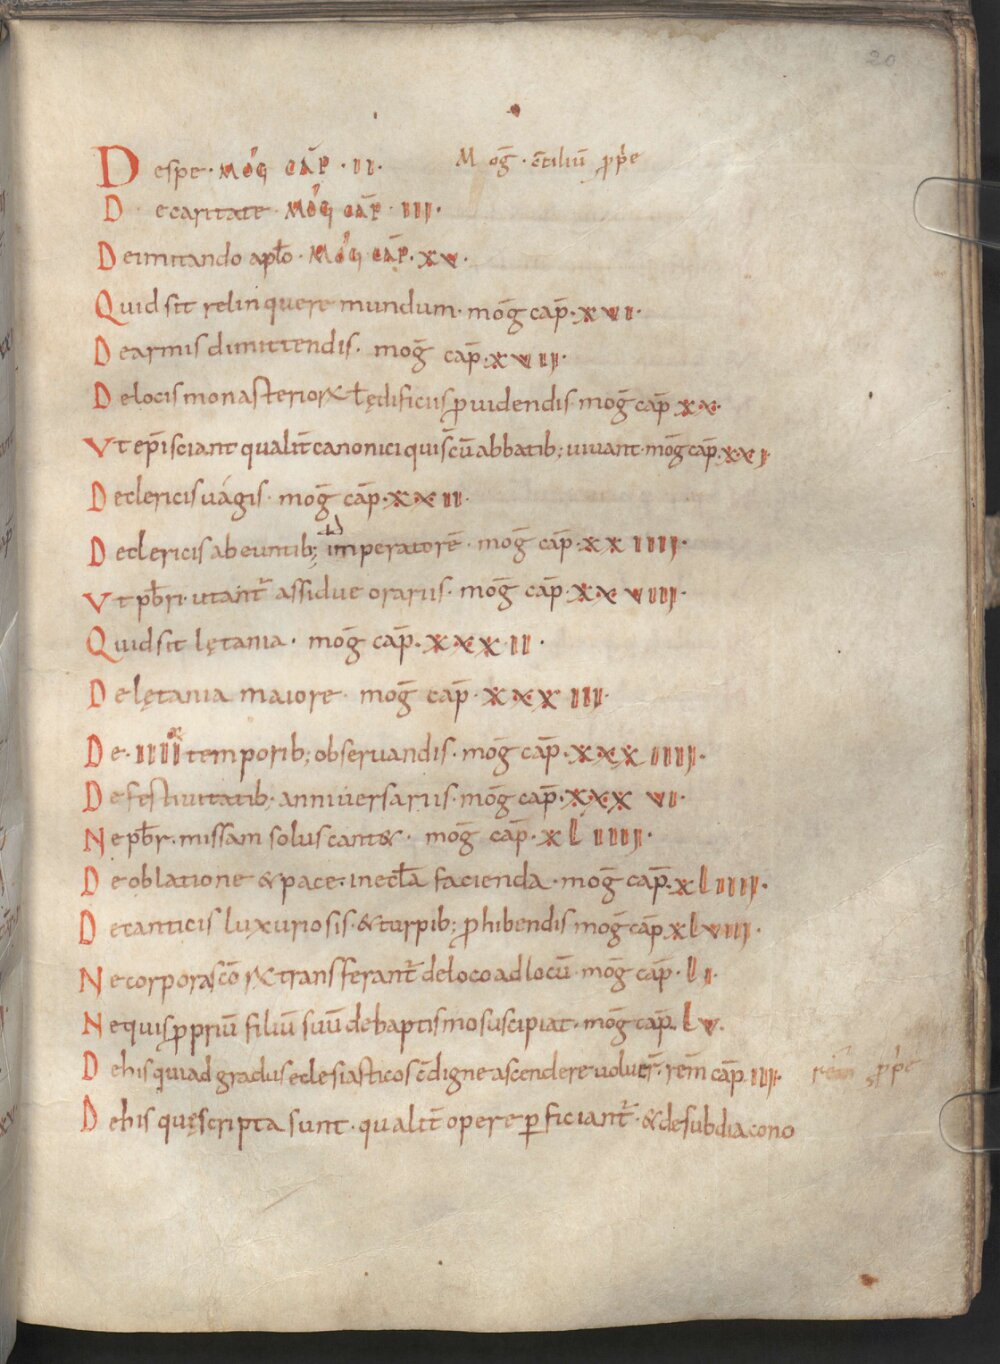 20
De spe · mog̅ cap̅ · II ·
Mog̅ · c̅ciliu̅ ꝓp̅e
De caritate · mog̅ cap̅ · III ·
De imitando apl̅o · mog̅ cap̅ · XV ·
Quid sit relinquere mundum · mog̅ cap̅ · XVI ·
De armis dimittendis · mog̅ cap̅ · XVII ·
De locis monasterior& l̅ ędificiis ꝓvidendis · mog̅ cap̅ XX ·
Vt ep̅i sciant qualit̅ canonici quis̅ cu̅ abbatib; vivant · mog̅ cap̅ · XXI ·
De clericis vagis · mog̅ cap̅ · XXII ·
De clericis abeuntib; ad imperatore̅ · mog̅ cap̅ · XXIIII ·
Vt pb̅ri · utant᷑ assidue orariis · mog̅ cap̅ · XXVIII ·
Quid sit lętania · mog̅ cap̅ · XXXII ·
De lętania maiore · mog̅ cap̅ · XXXIII ·
De · IIII temporib; observandis · mog̅ cap̅ · XXXIIII ·
De festivitatib; anniversariis · mog̅ cap̅ · XXXVI ·
Ne pb̅r · missam solus cant& · mog̅ cap̅ · XLIIII ·
De oblatione & pace · in eccl̅a facienda · mog̅ cap̅ · XLIIII ·
De canticis luxuriosis · & turpib; ꝓhibendis mog̅ cap̅ XLVIII ·
Ne corpora sc̅or& transferant᷑ de loco ad locu̅ · mog̅ cap̅ · LI ·
Ne quis ꝓpriu̅ filiu̅ suu̅ de baptismo suscipiat · mog̅ cap̅ · LV ·
De his qui ad gradus eclesiasticos c̅digne ascendere voluer̅ · rem̅ cap̅ IIII ·
rem̅ ꝓp̅e
De his quę scripta sunt · qualit̅ opere ꝑficiant᷑ · & de subdiacono